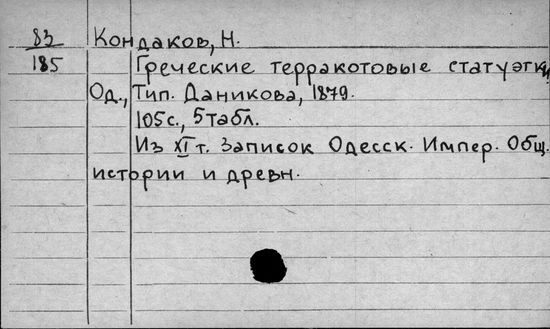 83 Кондаков, Н.
185 Греческие терракотовые статуэтки
Од., Тип. Даникова, 1879.
105с., 5табл.
Из XI т. Записок Одесск. Импер. Общ.
истории и древн.